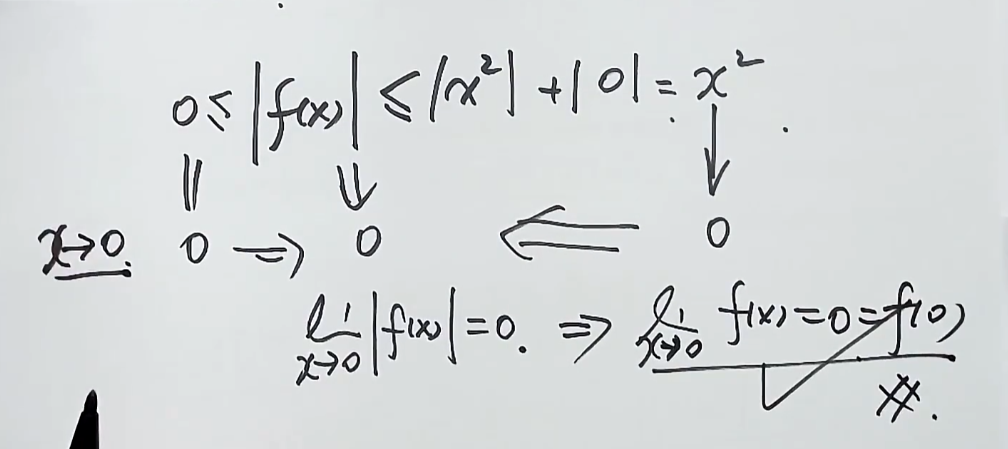 0 ≤ |f(x)| ≤ |x²| + |0| = x²
|| ⇓ ↓
x→0. 0 ⇒ 0 ⇐ 0
lim x→0 |f(x)| = 0. ⇒ lim x→0 f(x) = 0 = f(0)
#.